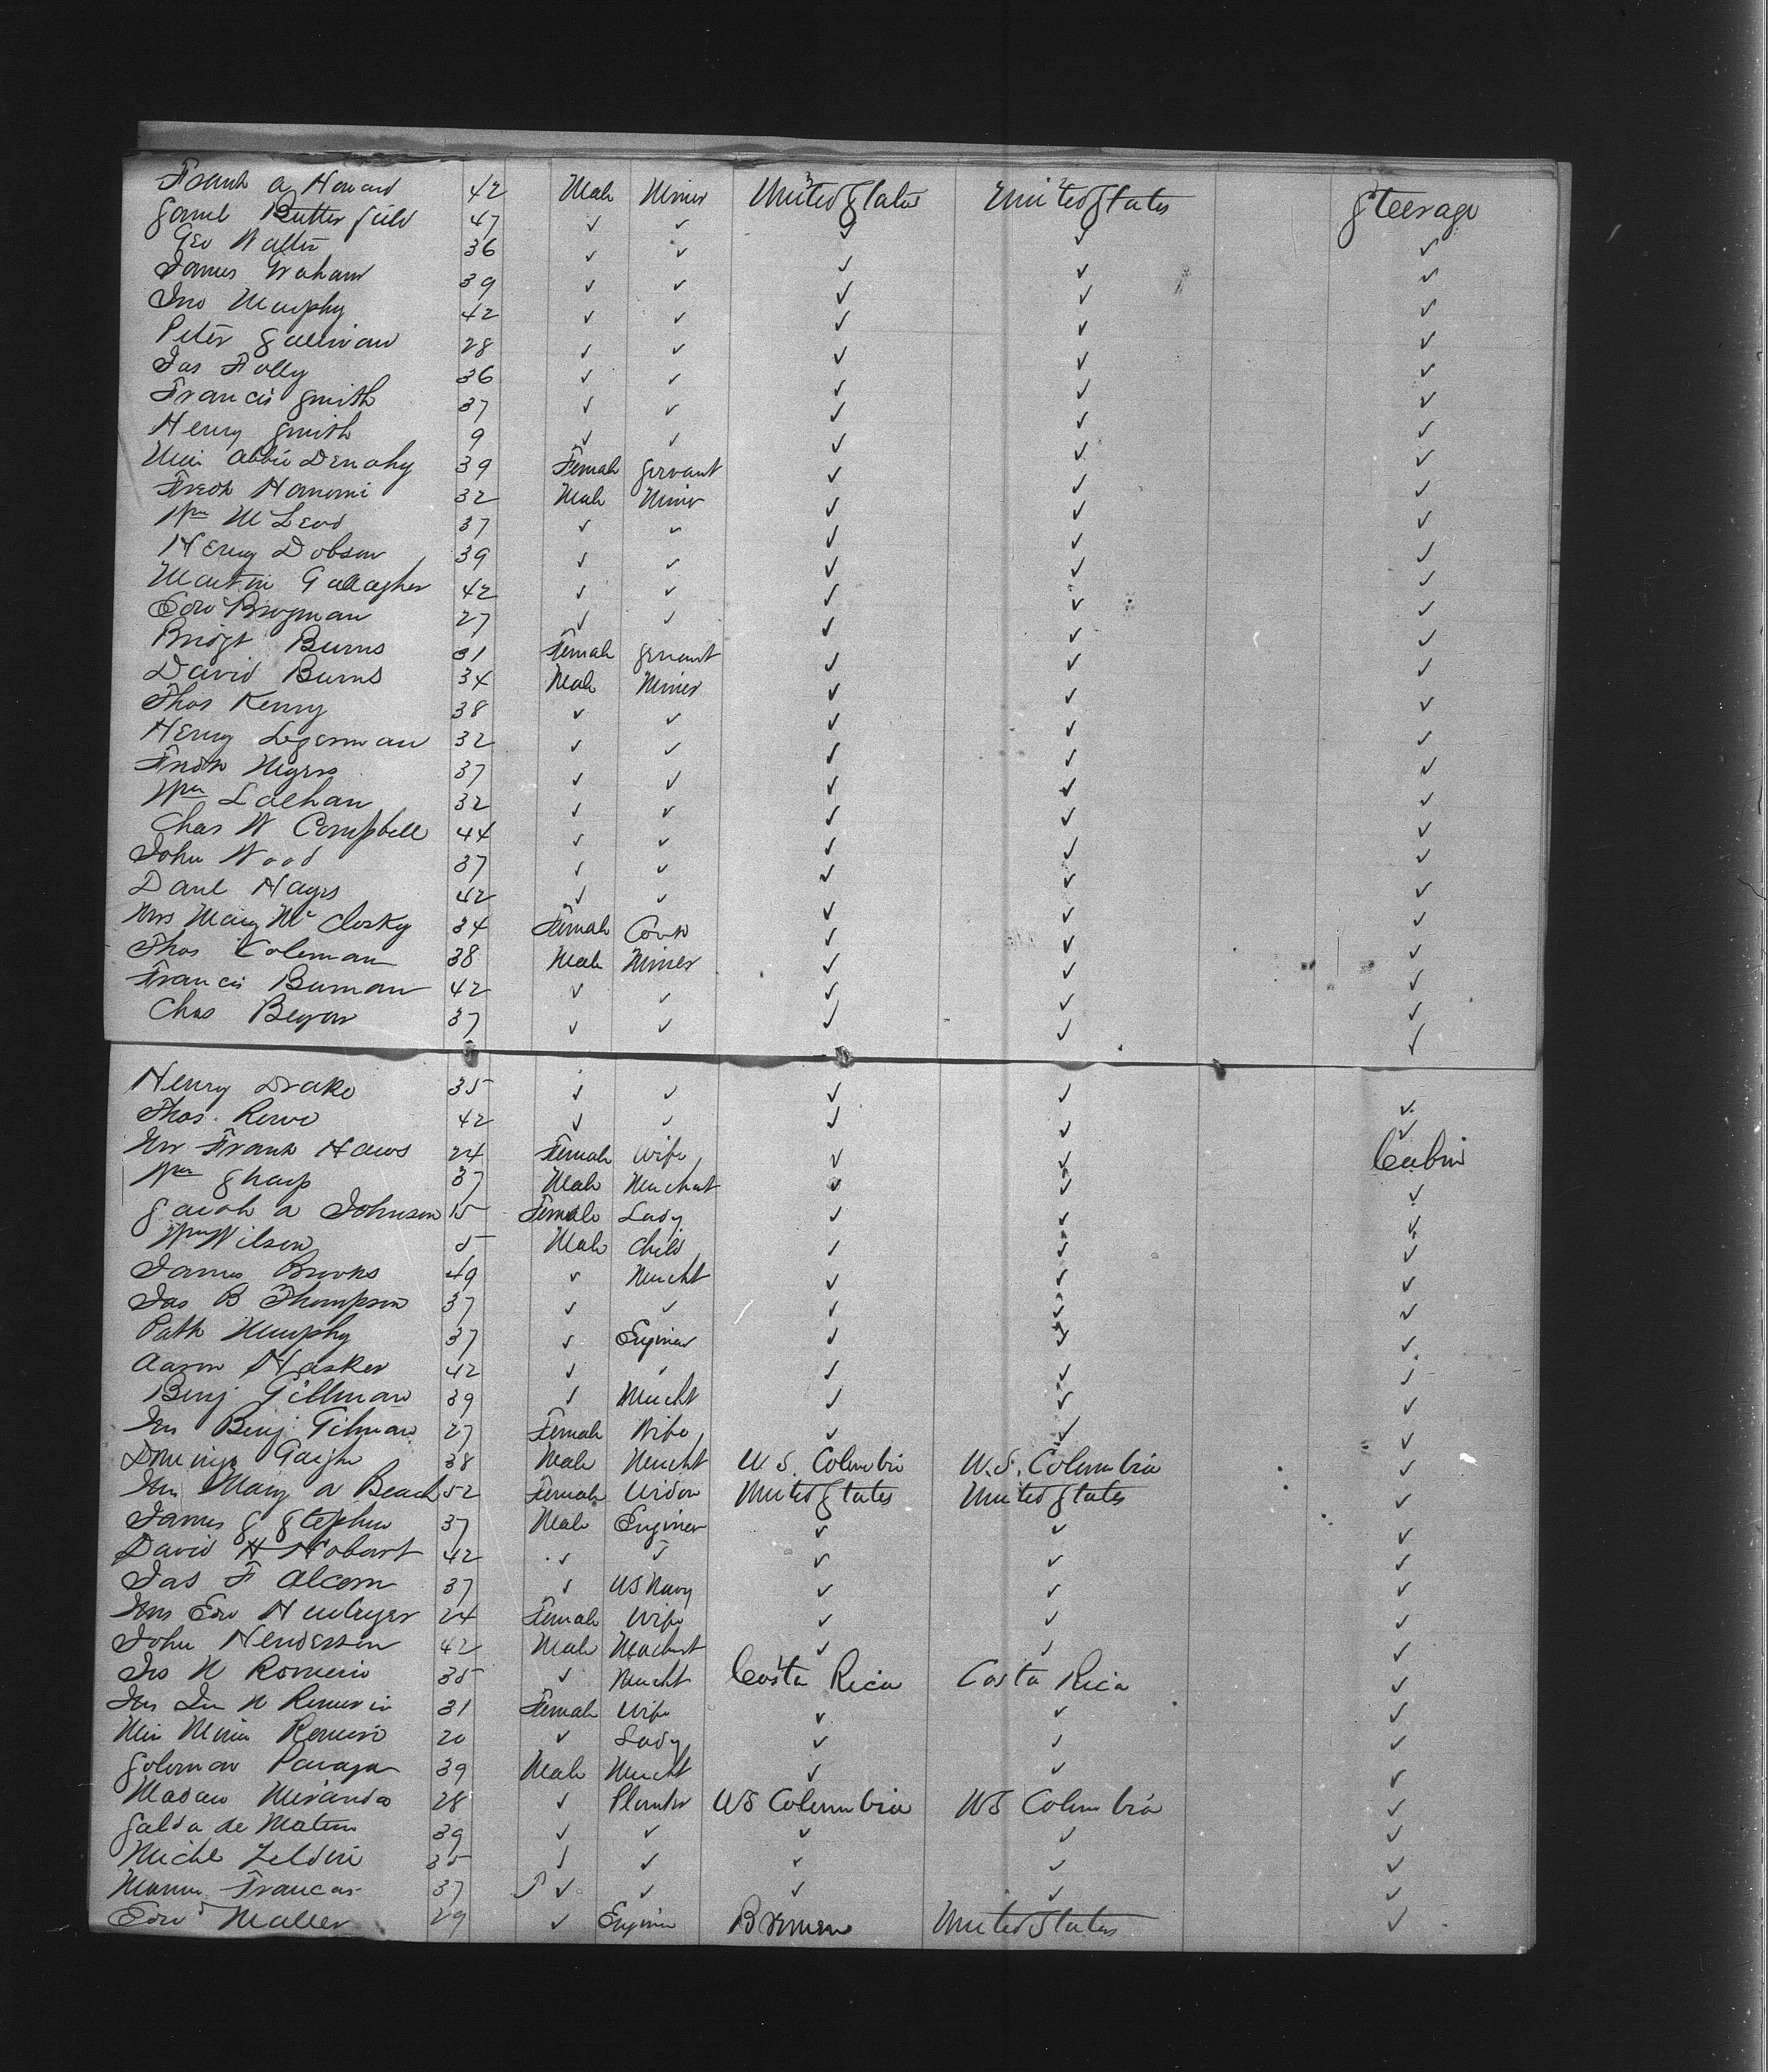 Frank A Howard 42 Male Miner United States United States Steerage
Saml Butterfield 47 ✓ ✓ ✓ ✓ ✓
Geo Walter 36 ✓ ✓ ✓ ✓ ✓
James Graham 39 ✓ ✓ ✓ ✓ ✓
Jno Murphy 42 ✓ ✓ ✓ ✓ ✓
Peter Sullivan 28 ✓ ✓ ✓ ✓ ✓
Jas Folly 36 ✓ ✓ ✓ ✓ ✓
Francis Smith 37 ✓ ✓ ✓ ✓ ✓
Henry Smith 9 ✓ ✓ ✓ ✓ ✓
Miss Abbie Denahy 39 Female Servant ✓ ✓ ✓
Fredk 32 Male Miner ✓ ✓ ✓
Wm McLeod 37 ✓ ✓ ✓ ✓ ✓
Henry Dobson 39 ✓ ✓ ✓ ✓ ✓
Martin Gallagher 42 ✓ ✓ ✓ ✓ ✓
Edw Brogman 27 ✓ ✓ ✓ ✓ ✓
Bridgt Burns 31 Female Servant ✓ ✓ ✓
David Burns 34 Male Miner ✓ ✓ ✓
Thos Kenny 38 ✓ ✓ ✓ ✓ ✓
Henry Legerman 32 ✓ ✓ ✓ ✓ ✓
Fredk Megers 37 ✓ ✓ ✓ ✓ ✓
Wm 32 ✓ ✓ ✓ ✓ ✓
Chas W Campbell 44 ✓ ✓ ✓ ✓ ✓
John Wood 37 ✓ ✓ ✓ ✓ ✓
Danl Hayes 42 ✓ ✓ ✓ ✓ ✓
Mrs Mary McClosky 34 Female Cook ✓ ✓ ✓
Thos Coleman 38 Male Miner ✓ ✓ ✓
Francis Burman 42 ✓ ✓ ✓ ✓ ✓
Chas 37 ✓ ✓ ✓ ✓ ✓
Henry Drake 35 ✓ ✓ ✓ ✓ ✓
Thos. Rowe 42 ✓ ✓ ✓ ✓ ✓
Mrs Frank Haws 24 Female Wife ✓ ✓ Cabin
Wm Sharp 37 Male Merchat ✓ ✓ ✓
Sarah A Johnson 15 Female Lady ✓ ✓ ✓
Wm Wilson 5 Male Child ✓ ✓ ✓
James Brooks 49 ✓ Mercht ✓ ✓ ✓
Jas B Thompson 37 ✓ ✓ ✓ ✓ ✓
Patk Murphy 37 ✓ Engineer ✓ ✓ ✓
Aaron Hasker 42 ✓ ✓ ✓ ✓ ✓
Benj Gillman 39 ✓ Mercht ✓ ✓ ✓
Mrs Benj Gilman 27 Female Wife ✓ ✓ ✓
Domingo 38 Male Mercht U.S. Columbia U.S. Columbia ✓
Mrs Mary A Beach 52 Female Widow United States United States ✓
James S Stephen 37 Male Engineer ✓ ✓ ✓
David H Hobart 42 ✓ ✓ ✓ ✓ ✓
Jas F Alcorn 37 ✓ US Navy ✓ ✓ ✓
Mrs Edw 24 Female Wife ✓ ✓ ✓
John Henderson 42 Male Machust ✓ ✓ ✓
Jno N Romerio 35 ✓ Mercht Costa Rica Costa Rica ✓
Mrs Jno N Romerio 31 Female Wife ✓ ✓ ✓
Miss Maria Romerio 20 ✓ Lady ✓ ✓ ✓
Soloman 39 Male Mercht ✓ ✓ ✓
Madaw Miranda 28 ✓ Planter US Columbia US Columbia ✓
Salda de Maten 39 ✓ ✓ ✓ ✓ ✓
Michl Zeldin 35 ✓ ✓ ✓ ✓ ✓
Francas 37 ✓ ✓ ✓ ✓ ✓
Edwd Maller 29 ✓ Engineer Bremen United States ✓